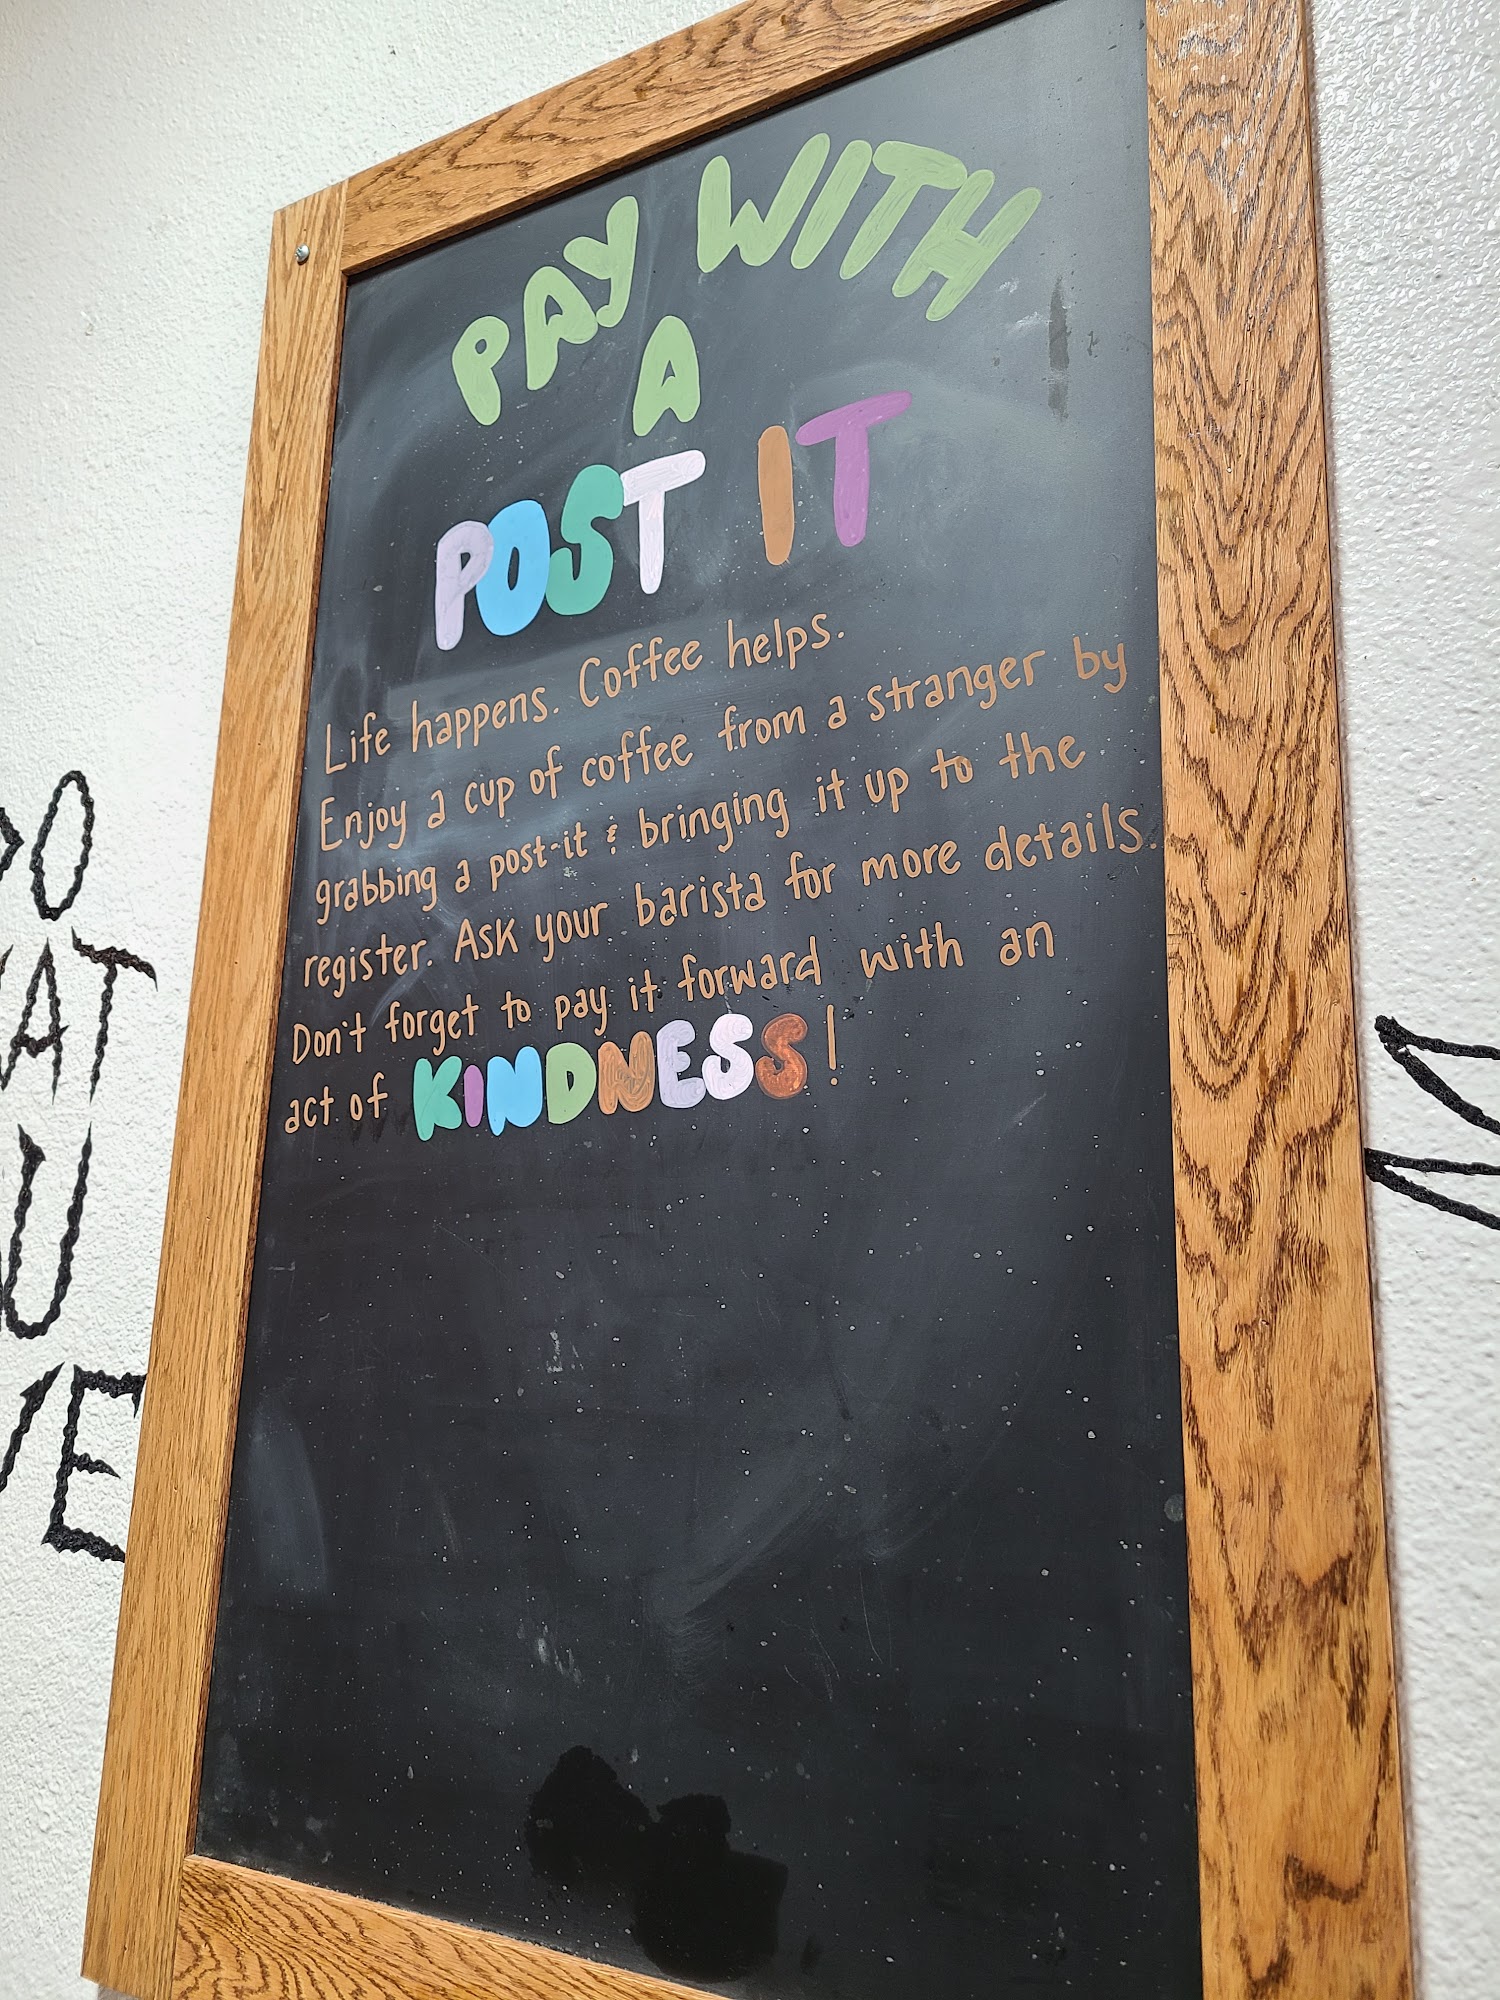 PAY WITH
A
POST IT
Life happens. Coffee helps.
Enjoy a cup of coffee from a stranger by
grabbing a post-it & bringing it up to the
register. Ask your barista for more details.
Don't forget to pay it forward with an
act of KINDNESS!